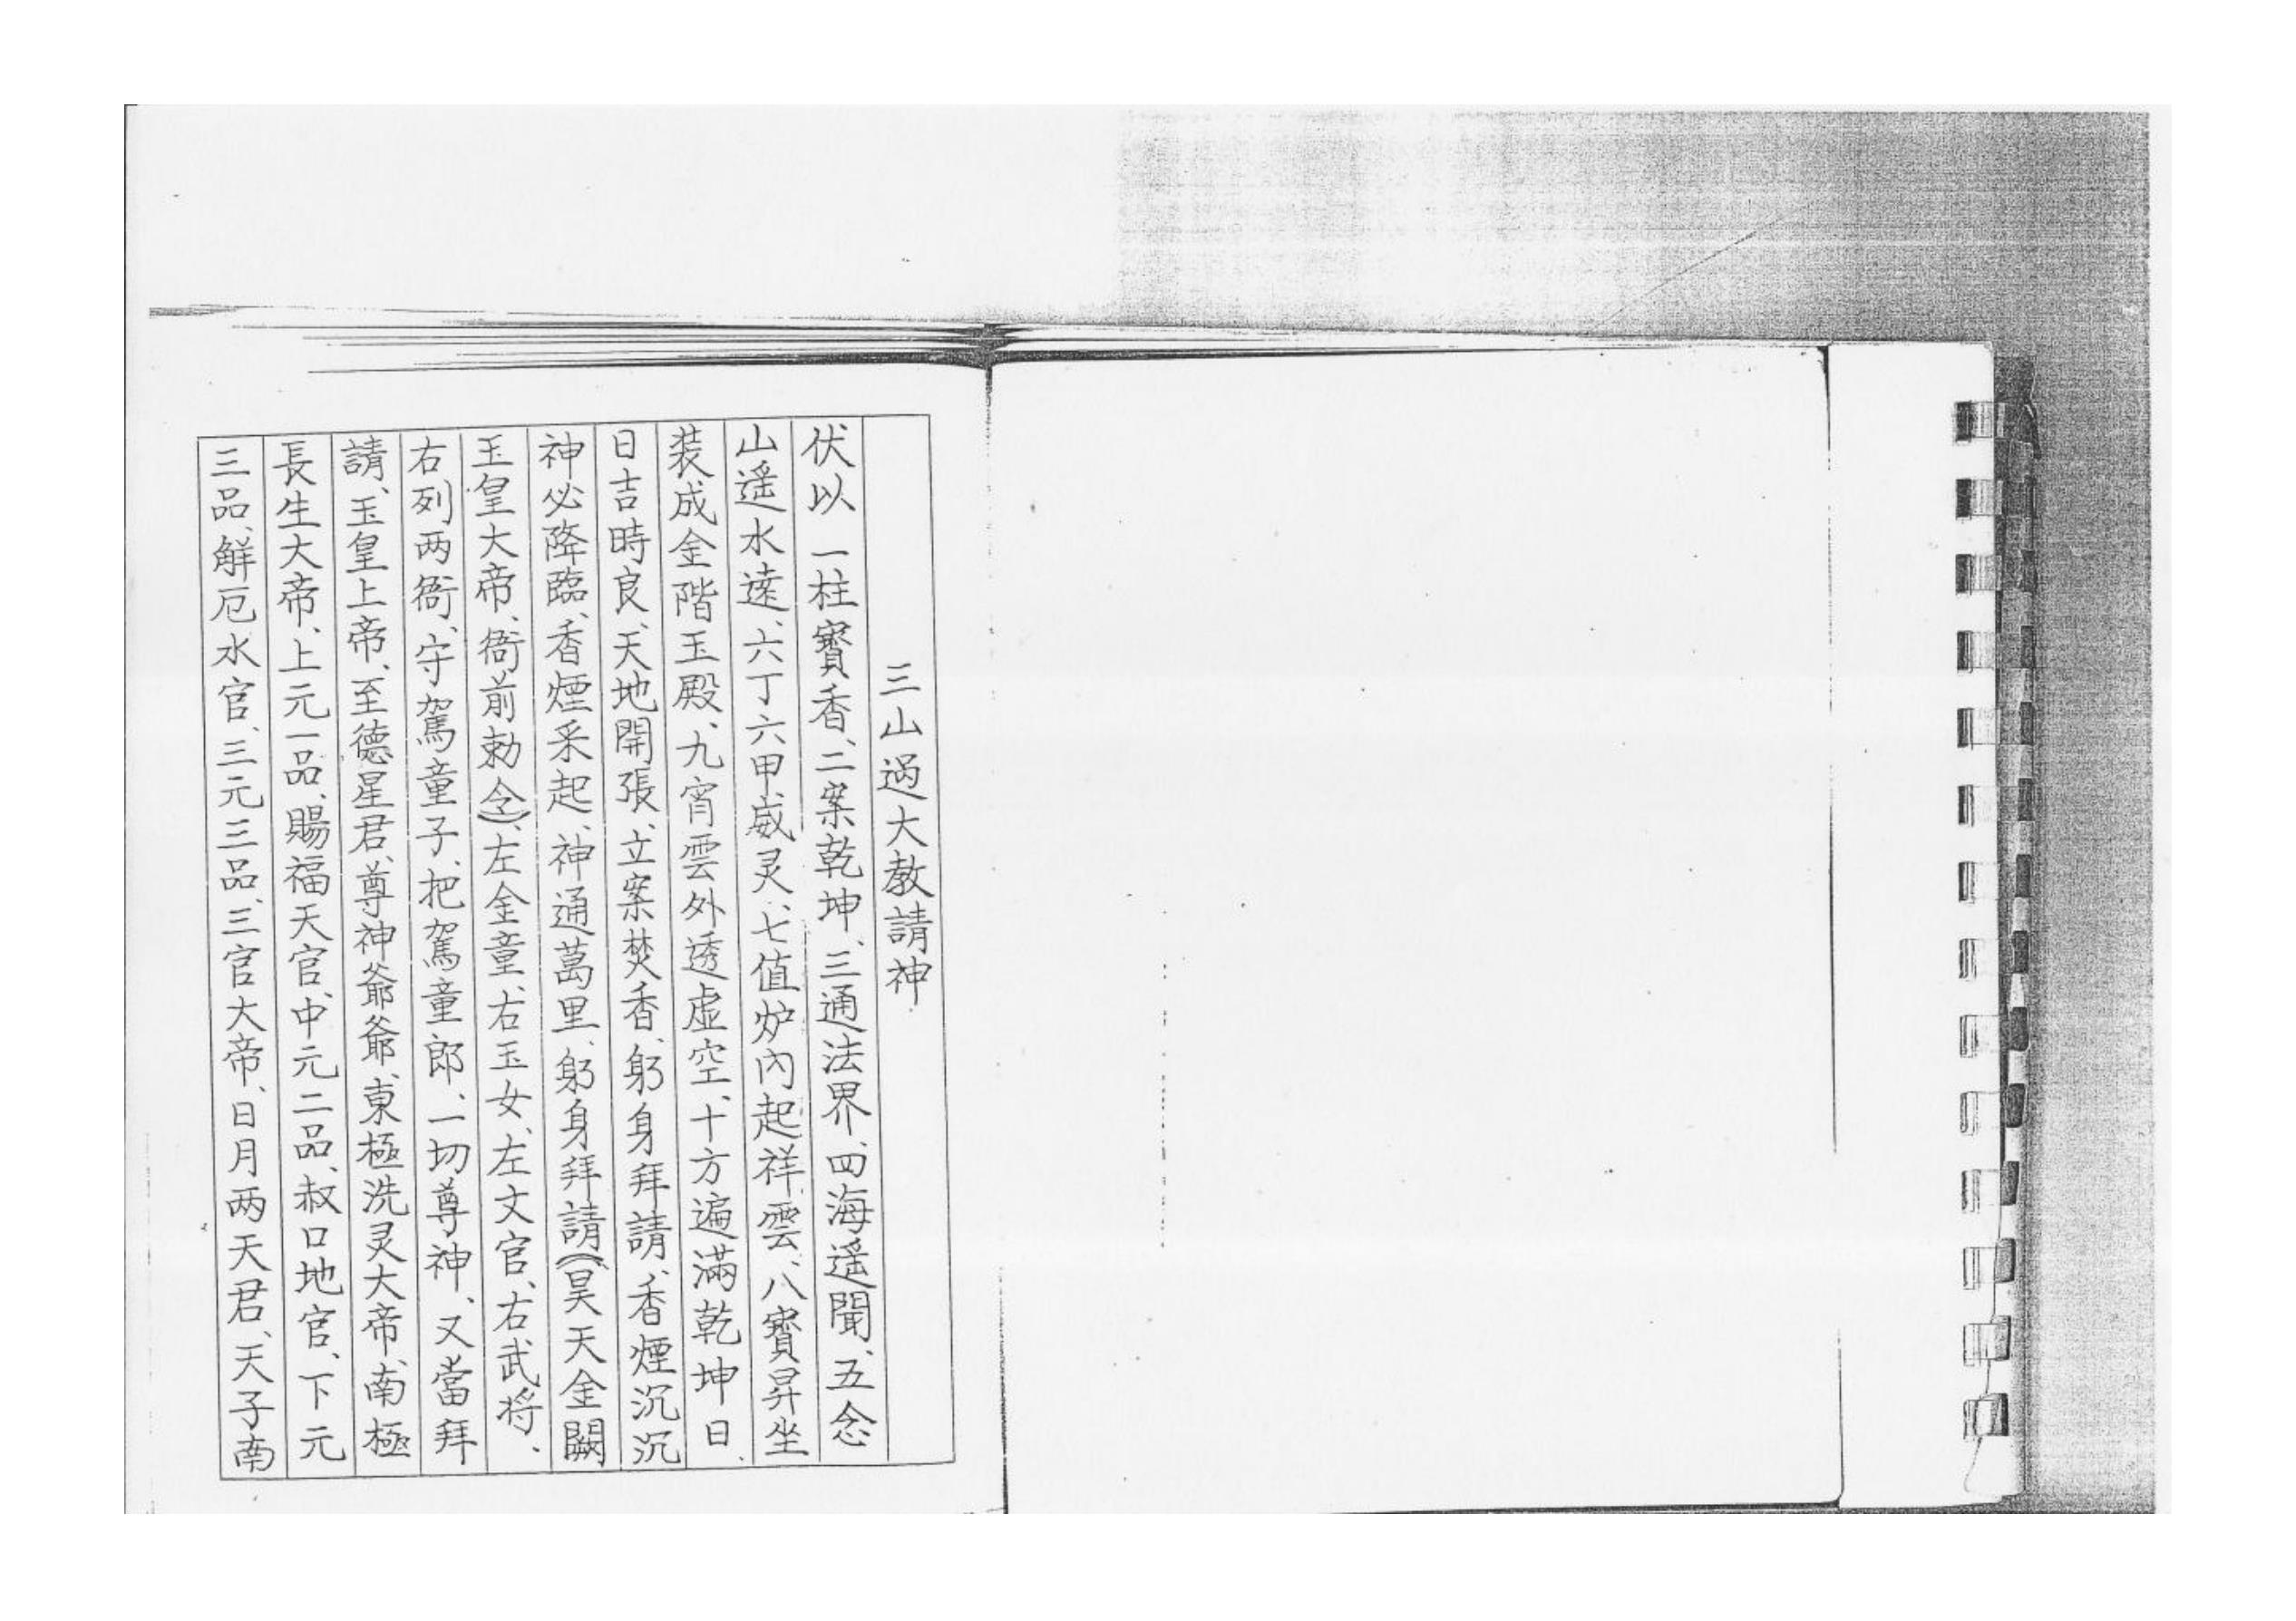 三山过大教請神
伏以一柱寳香、二案乾坤、三通法界、四海遥聞、五念
山遥水遠、六丁六甲威灵、七值炉內起祥雲、八寳昇坐
装成金階玉殿、九宵雲外透虚空、十方遍滿乾坤日、
日吉時良、天地開張、立案焚香、躬身拜請、香煙沉沉
神必降臨、香煙采起、神通萬里、躬身拜請(昊天金闕
玉皇大帝、衙前勅令)、左金童、右玉女、左文官、右武将、
右列两衙、守駕童子、把駕童郎、一切尊神、又當拜
請、玉皇上帝、至德星君、尊神爺爺、東極洗灵大帝、南極
長生大帝、上元一品、賜福天官、中元二品、赦口地官、下元
三品、解厄水官、三元三品、三官大帝、日月两天君、天子南